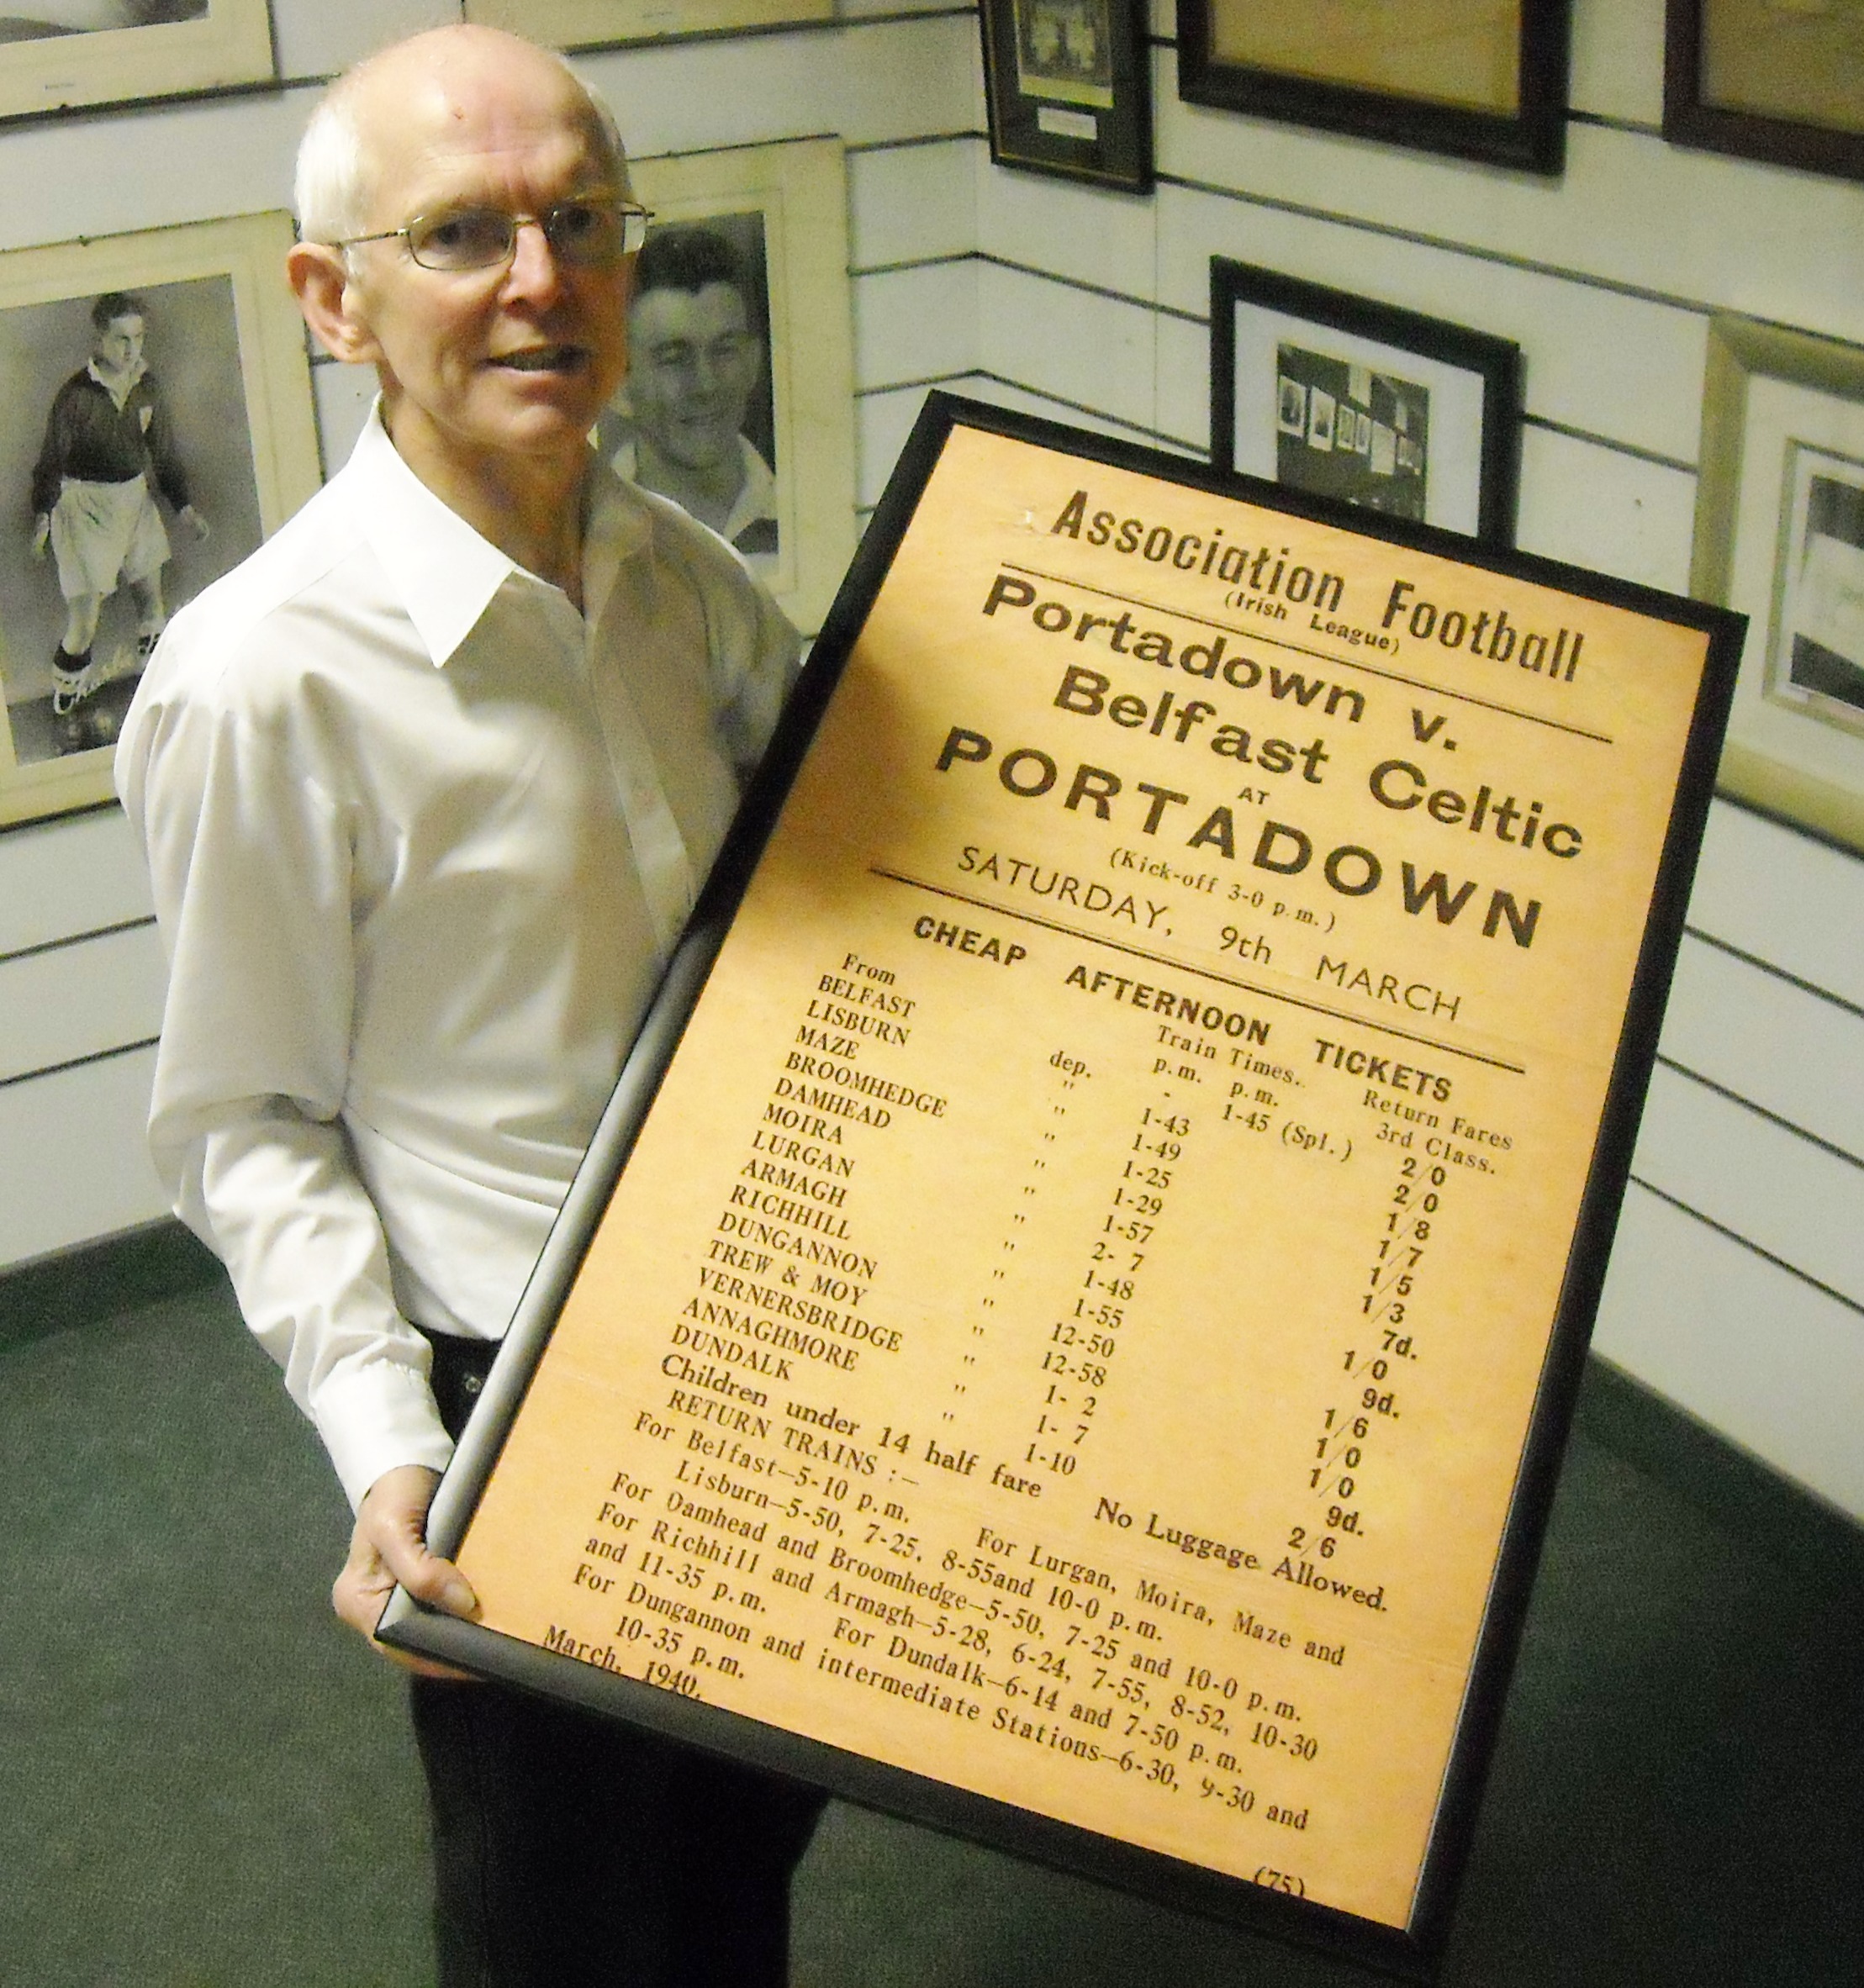 Association Football
(Irish League)
Portadown v.
Belfast Celtic
AT
PORTADOWN
(Kick-off 3-0 p.m.)
SATURDAY, 9th MARCH
CHEAP AFTERNOON TICKETS
From Train Times. Return Fares
p.m. p.m. 3rd Class.
BELFAST dep. - 1-45 (Spl.) 2/0
LISBURN " 1-43 2/0
MAZE " 1-49 1/8
BROOMHEDGE " 1-25 1/7
DAMHEAD " 1-29 1/5
MOIRA " 1-57 1/3
LURGAN " 2- 7 7d.
ARMAGH " 1-48 1/0
RICHHILL " 1-55 9d.
DUNGANNON " 12-50 1/6
TREW & MOY " 12-58 1/0
VERNERSBRIDGE " 1- 2 1/0
ANNAGHMORE " 1- 7 9d.
DUNDALK " 1-10 2/6
Children under 14 half fare No Luggage Allowed.
RETURN TRAINS :—
For Belfast—5-10 p.m. For Lurgan, Moira, Maze and
Lisburn—5-50, 7-25, 8-55and 10-0 p.m.
For Damhead and Broomhedge—5-50, 7-25 and 10-0 p.m.
For Richhill and Armagh—5-28, 6-24, 7-55, 8-52, 10-30
and 11-35 p.m. For Dundalk—6-14 and 7-50 p.m.
For Dungannon and intermediate Stations—6-30, 9-30 and
10-35 p.m.
March, 1940. (75)